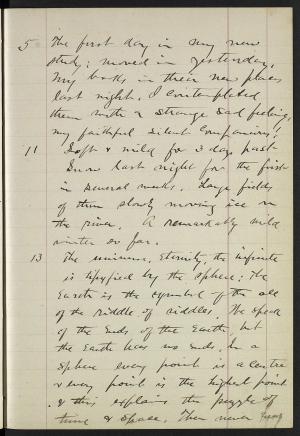 5 The first day in my new
study; moved in yesterday,
my books in their new places
last night. I contemplated
them with a strange sad feeling,
my faithful silent companions!
11 Soft & mild for 3 days past
Snow last night for the first
in several weeks. Large fields
of them slowly moving ice on
the river. A remarkably mild
winter so far.
13 The universe, Eternity, the infinite
is typified by the sphere; The
Earth is the symbol of the all
of the riddle of riddles. We speak
of the Ends of the Earth, but
the Earth has no ends. In a
sphere every point is a centre
& every point is the highest point
& this explains the puzzle of
time & space. There never